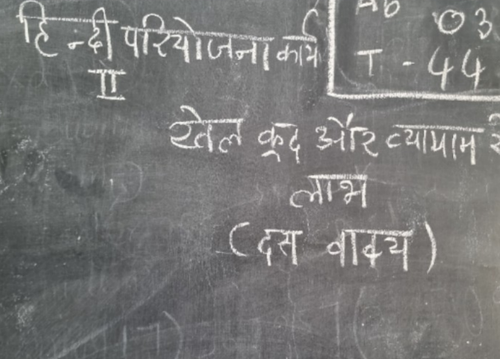 हिन्दी परियोजना कार्य
II
Ab 03
T - 44
खेल कूद और व्यायाम से
लाभ
(दस वाक्य)